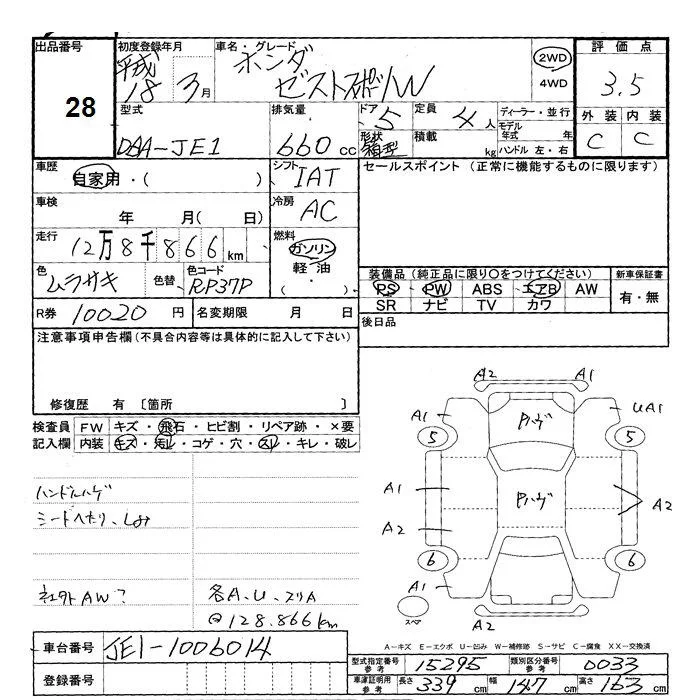 出品番号
28
初度登録年月
平成
18年 3月
車名・グレード
ホンダ
ゼストスポーツW
2WD
4WD
評価点
3.5
外装 内装
C C
型式
DBA-JE1
排気量
660 cc
ドア
5
形状
箱型
定員
4人
積載
kg
ディーラー・並行
モデル年式 年
ハンドル 左・右
車歴
自家用・( )
シフト
IAT
セールスポイント (正常に機能するものに限ります)
車検
年 月( 日)
冷房
AC
走行
12万8千866km
燃料
ガソリン
軽油
( ・ )
色
ムラサキ
色替
色コード
RP37P
装備品 (純正品に限り○をつけてください)
PS PW ABS エアB AW
SR ナビ TV カワ
新車保証書
有・無
R券 10020 円
名変期限 月 日
後日品
注意事項申告欄 (不具合内容等は具体的に記入して下さい)
修復歴 有 〔箇所 〕
検査員記入欄
FW キズ・飛石・ヒビ割・リペア跡・×要
内装 キズ・汚レ・コゲ・穴・スレ・キレ・破レ
ハンドルハゲ
シートヘたり、しみ
社外AW?
各A、U、スリA
@128.866km
A2 A1
A1 UA1
Pハゲ
5 5
Pハゲ
A1
A2
A2
6 6
A1
スペア
A2
A-キズ E-エクボ U-凹み W-補修跡 S-サビ C-腐食 XX-交換済
車台番号 JE1-1006014
登録番号
型式指定番号 参考 15295
類別区分番号 参考 0033
車庫証明用 参考 長さ 339cm 幅 147cm 高さ 163cm